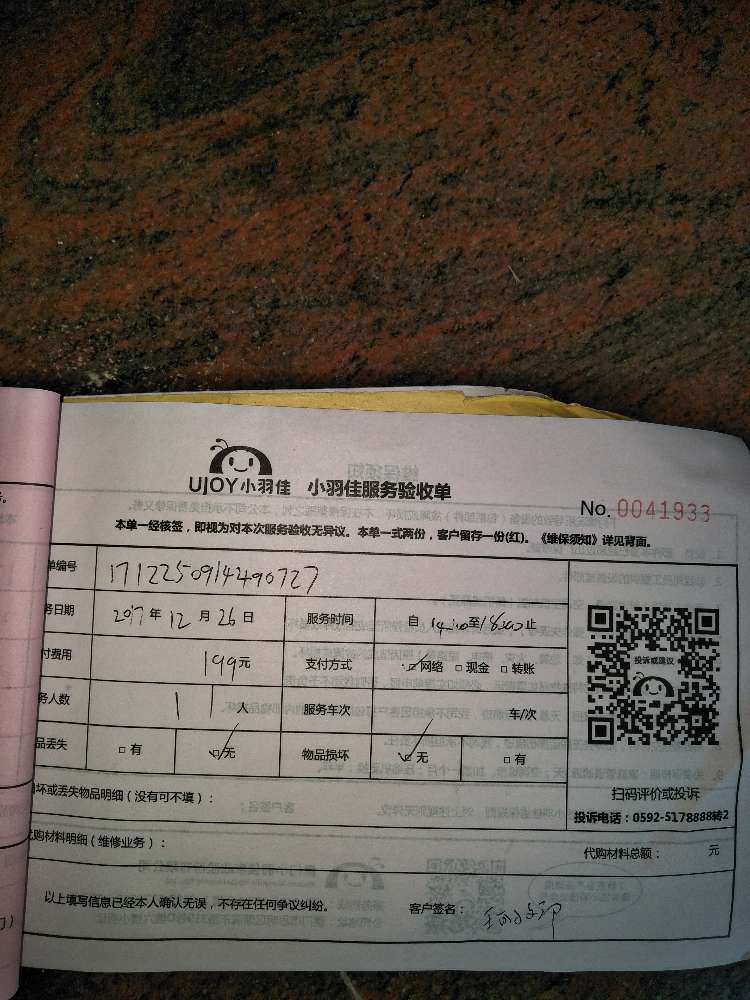 UJOY小羽佳 小羽佳服务验收单
No. 0041933
本单一经核签，即视为对本次服务验收无异议。本单一式两份，客户留存一份(红)。《维保须知》详见背面。
单编号 171225091449072​7
务日期 2017年12月26日 服务时间 自 14:00至18:00止
付费用 199元 支付方式 ☑网络 □现金 □转账
务人数 1人 服务车次 车/次
品丢失 □有 ☑无 物品损坏 ☑无 □有
投诉或建议
扫码评价或投诉
投诉电话：0592-5178888转2
坏或丢失物品明细（没有可不填）：
代购材料明细（维修业务）： 代购材料总额： 元
以上填写信息已经本人确认无误，不存在任何争议纠纷。 客户签名：